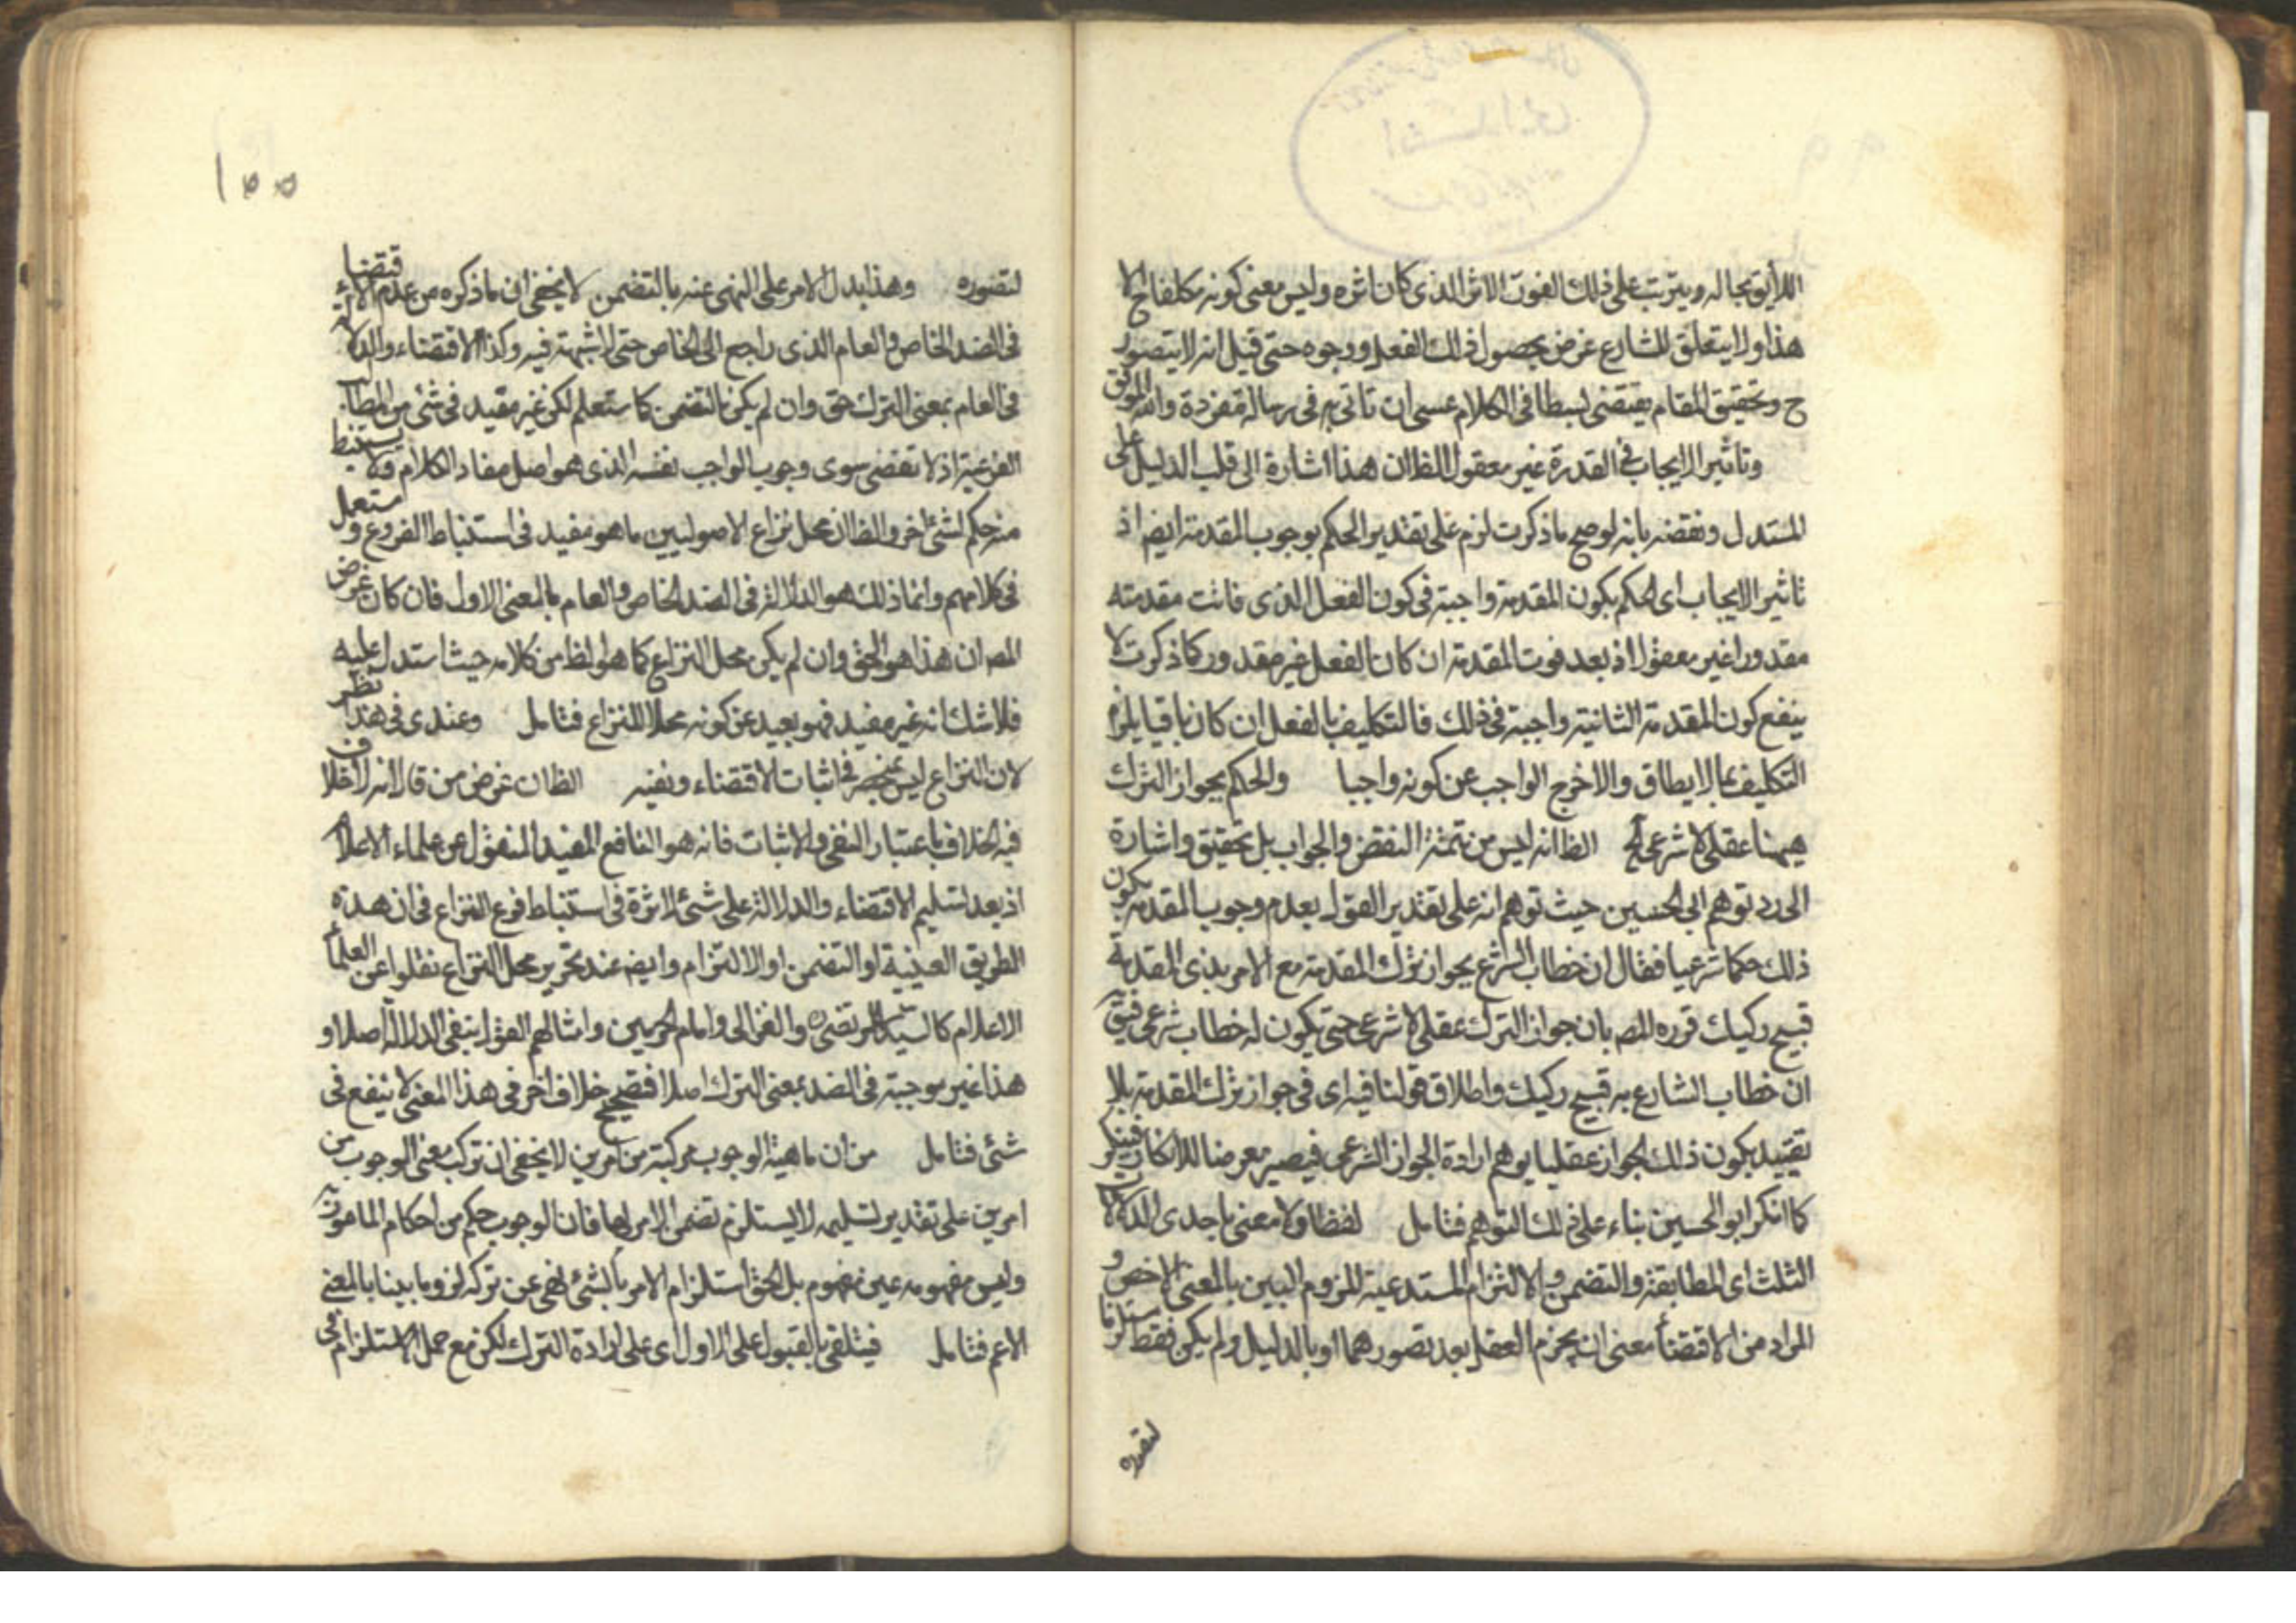 اللايق بحاله ويترتب على ذلك الفوت الاثر الذى كان اثره وليس معنى كونه مكلفا ح الا
هذا ولا يتعلق للشارع غرض بحصول ذلك الفعل ووجوه حتى قيل انه لا يتصور
ح وتحقيق المقام يقتضى بسطا فى الكلام عسى ان ناتى به فى رسالة مفردة والله الموفق
وتاثير الايجاب فى القدرة غير معقول الظ ان هذا اشارة الى قلب الدليل على
المستدل ونقضه بانه لو صح ما ذكرت لزم على تقدير الحكم بوجوب المقدمة ايضا اذ
تاثير الايجاب اى الحكم بكون المقدمة واجبة فى كون الفعل الذى فاتت مقدمته
مقدورا غير معقول اذ بعد فوت المقدمة ان كان الفعل غير مقدور كما ذكرت لا
ينفع كون المقدمة الثانية واجبة فى ذلك فالتكليف بالفعل ان كان باقيا يلزم
التكليف بما لا يطاق والا خرج الواجب عن كونه واجبا والحكم بجواز الترك
ههنا عقلى لا شرعى الخ الظ انه ليس من تتمة النقض والجواب بل تحقيق واشارة
الى رد توهم ابى الحسين حيث توهم انه على تقدير القول بعدم وجوب المقدمة يكون
ذلك حكما شرعيا فقال ان خطاب الشرع بجواز ترك المقدمة مع الامر بذى المقدمة
قبيح ركيك قرره المص بان جواز الترك عقلى لا شرعى حتى يكون له خطاب شرعى فيق
ان خطاب الشارع به قبيح ركيك واطلاق قولنا فيه اى فى جواز ترك المقدمة بلا
تقييد بكون ذلك الجواز عقليا يوهم ارادة الجواز الشرعى فيصير معرضا للانكار فينكر
كما انكر ابو الحسين بناء على ذلك التوهم فتامل لفظا ولا معنى باحدى الدلالات
الثلث اى المطابقة والتضمن والالتزام المستدعية للزوم البين بالمعنى الاخص و
المراد من الاقتضاء معنى ان يجزم العقل بعد تصورهما او بالدليل ولم يكن فقط مستلزما
لتصوره
١٥٥
لتصوره وهذا يدل الامر على النهى عنه بالتضمن لا يخفى ان ما ذكره من عدم الاقتضاء
فى الضد الخاص والعام الذى راجع الى الخاص حق لا شبهة فيه وكذا الاقتضاء والدلالة
فى العام بمعنى الترك حق وان لم يكن بالتضمن كما ستعلم لكن غير مفيد فى شئ من المطالب
الفرعية اذ لا تقضى سوى وجوب الواجب نفسه الذى هو اصل مفاد الكلام ولا يستنبط
منه حكم لشئ اخر والظ ان محل نزاع الاصوليين ما هو مفيد فى استنباط الفروع و مستعمل
فى كلامهم وانما ذلك هو الدلالة فى الضد الخاص والعام بالمعنى الاول فان كان غرض
المص ان هذا هو الحق وان لم يكن محل النزاع كما هو الظ من كلامه حيث استدل عليه
فلا شك انه غير مفيد فهو بعيد عن كونه محلا للنزاع فتامل وعندى فى هذا نظر
لان النزاع ليس بمنحصر فى اثبات الاقتضاء ونفيه الظ ان غرض من قال انه لا خلاف
فيه الخلاف باعتبار النفى والاثبات فانه هو النافع المفيد المنقول عن علماء الاعلام
اذ بعد تسليم الاقتضاء والدلالة على شئ لا ثمرة فى استنباط فرع النزاع فى ان هذه
الطريق العينية او التضمن او الالتزام وايضا عند تحرير محل النزاع نقلوا عن العلماء
الاعلام كالسيد المرتضى ره والغزالى وامام الحرمين وامثالهم القول بنفى الدلالة اصلا و
هذا غير موجبة فى الضد بمعنى الترك اصلا فتصحيح خلاف اخر فى هذا المعنى لا ينفع فى
شئ فتامل من ان ماهية الوجوب مركبة من امرين لا يخفى ان تركب معنى الوجوب من
امرين على تقدير تسليمه لا يستلزم تضمن الامر لهما فان الوجوب حكم من احكام المامور به
وليس مفهومه عين مفهومه بل الحق استلزام الامر بالشئ نهى عن تركه لزوما بينا بالمعنى
الاعم فتامل فيتلقى بالقبول على الاول اى على ارادة الترك لكن مع حمل الاستلزام فى